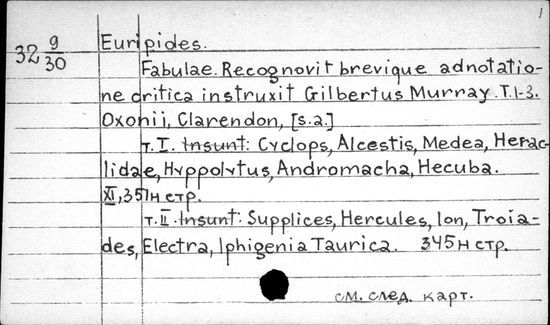 1
32 9/30
Euripides.
Fabulae. Recognovit brevique adnotatio-
ne critica instruxit Gilbertus Murray. T.1-3.
Oxonii, Clarendon, [s.a.]
т.I. Insunt: Cyclops, Alcestis, Medea, Herac-
lidae, Hyppolytus, Andromacha, Hecuba.
XI, 351н стр.
т.II. Insunt: Supplices, Hercules, Ion, Troia-
des, Electra, Iphigenia Taurica. 345н стр.
см. след. карт.